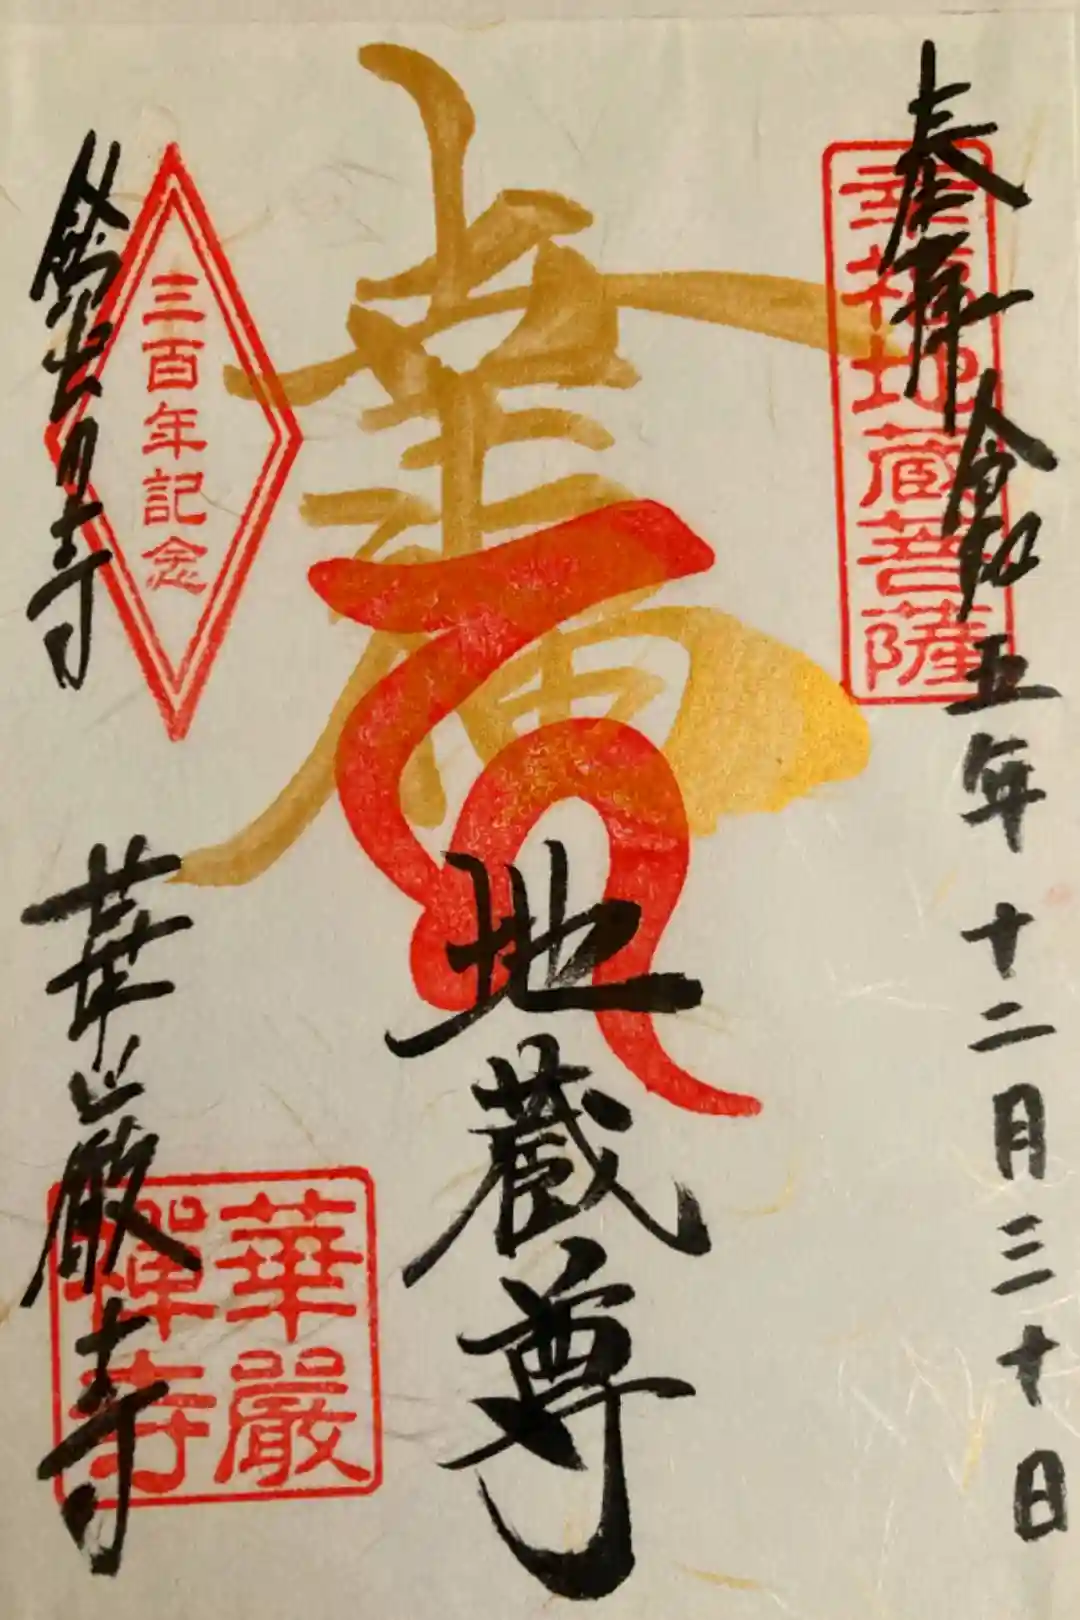 奉拝 令和五年十二月三十日
幸福地蔵菩薩
幸福
地蔵尊
三百年記念
鈴虫の寺
華厳寺
華嚴
禪寺